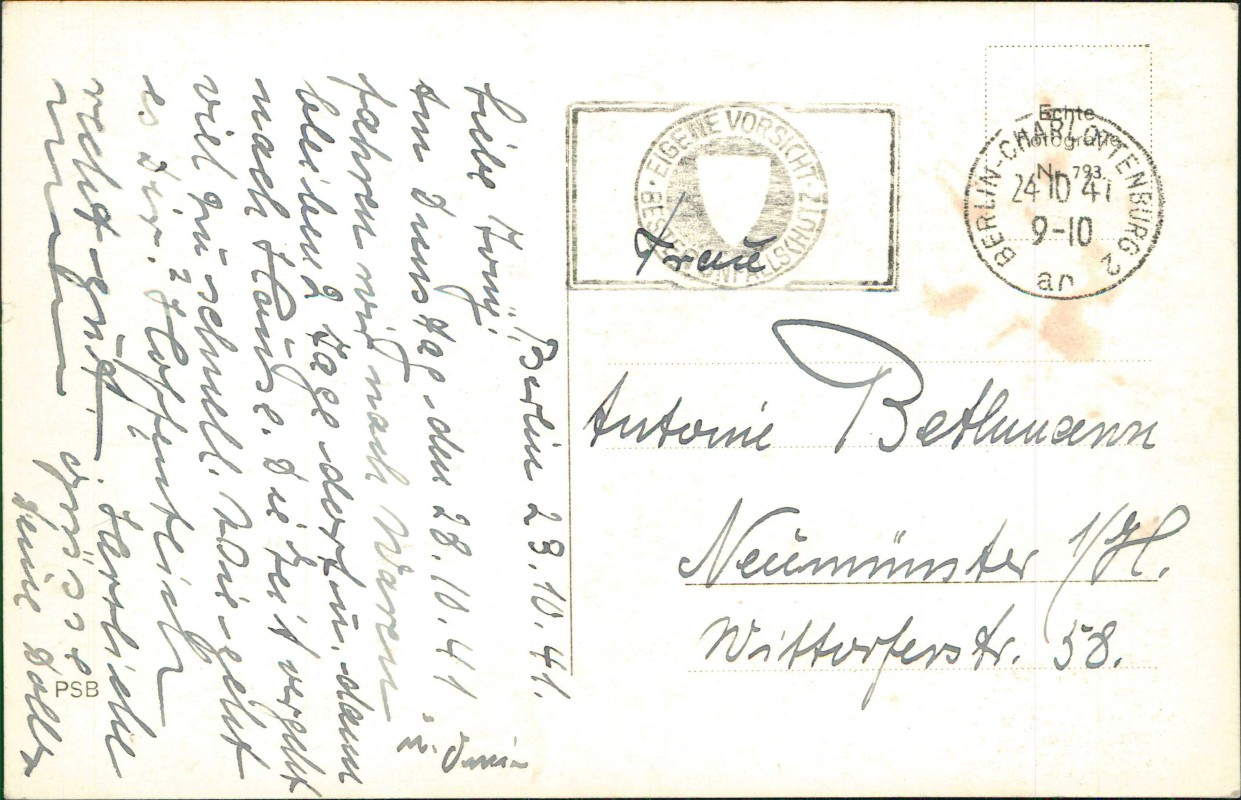 Berlin 23.10.41.
Liebe Tony!
Am Dienstag den 28.10.41
fahren wir nach Waren
bleiben 2 Tage dort u. dann
nach Hause. Die Zeit vergeht
viel zu schnell. Wie geht
es Dir? Hoffentlich
recht gut. Herzliche
Grüsse
Deine
PSB
EIGENE VORSICHT · BESTER UNFALLSCHUTZ
Echte
Fotografie
Nr. 793.
BERLIN-CHARLOTTENBURG 2
24.10.41
9-10
an
Frau
Antonie Bethmann
Neumünster i/H.
Wittorferstr. 58.